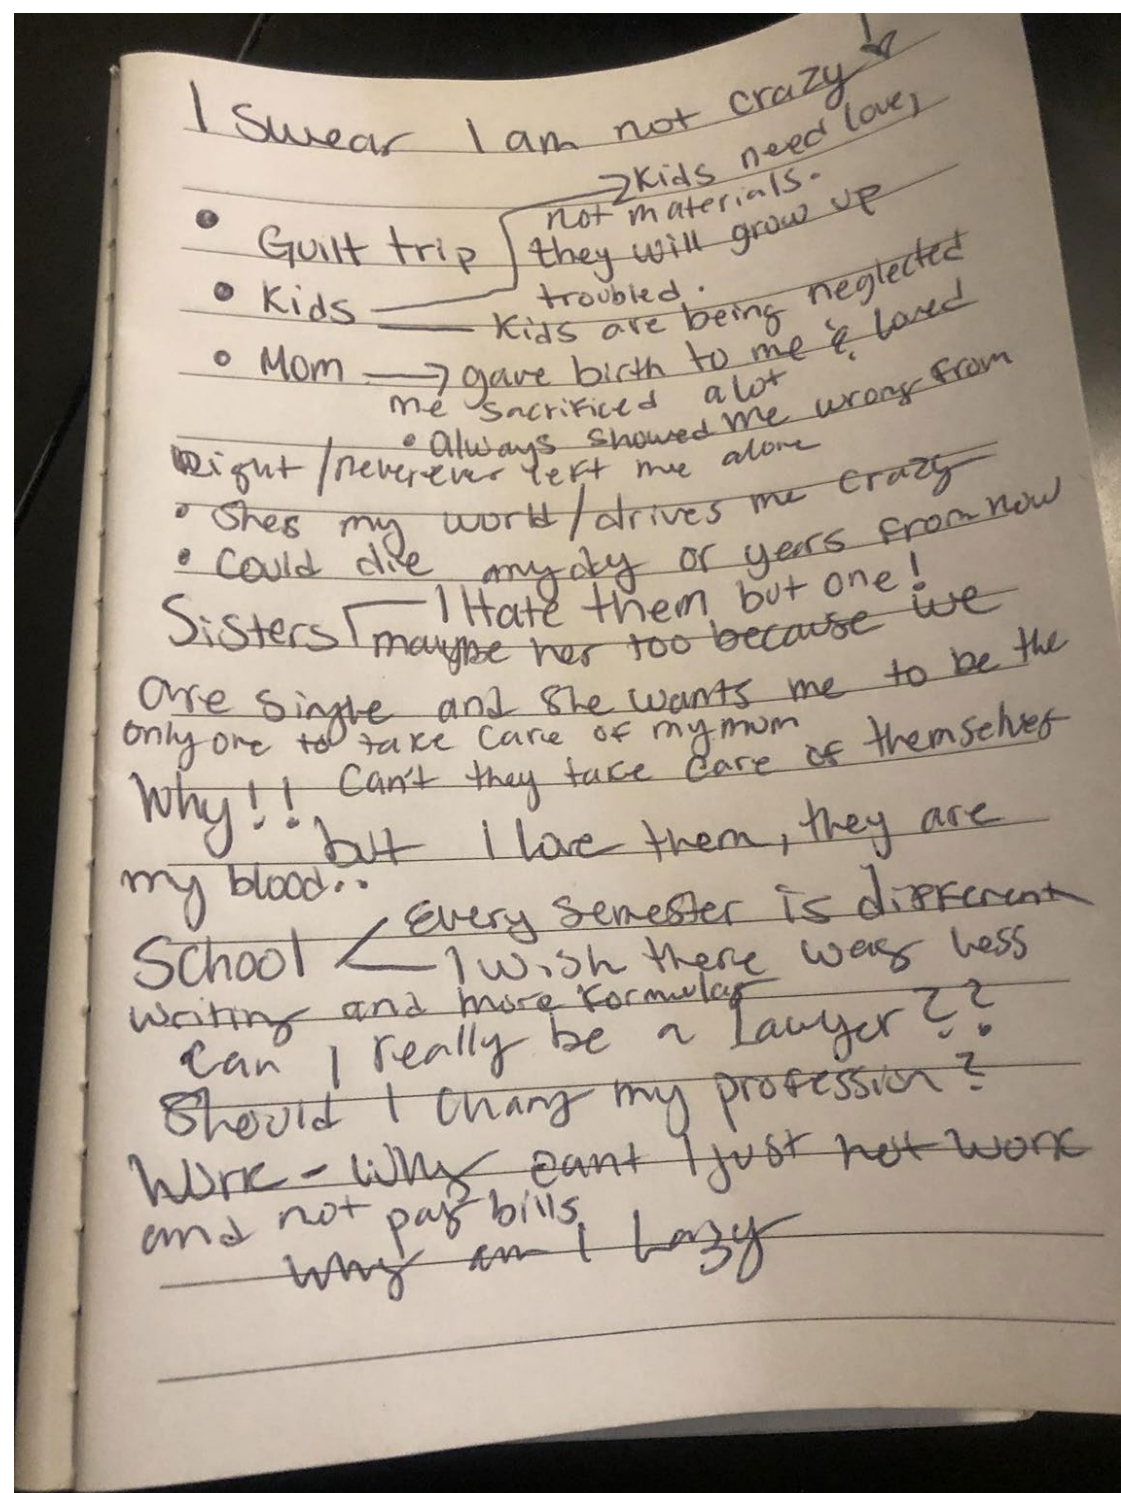 I Swear I am not crazy
• Guilt trip
• Kids → Kids need love,
not materials.
they will grow up
troubled.
Kids are being neglected
• Mom → gave birth to me & loved
me sacrificed alot
• Always showed me wrong from
Right/neverever left me alone
• Shes my world/drives me crazy
• Could die anyday or years from now
Sisters I Hate them but one!
maybe her too because we
are single and she wants me to be the
only one to take care of my mum
Why!! Can't they take care of themselves
but I love them, they are
my blood..
School < Every semester is different
I wish there was Less
writing and more formulas
Can I really be a Lawyer??
Should I chang my profession?
Work - Why cant I just not work
and not pay bills.
Why am I Lazy